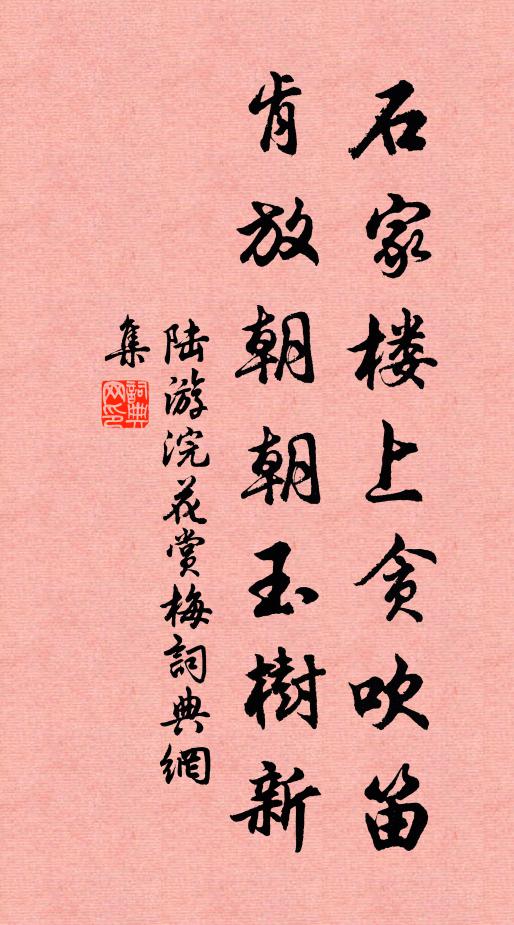 石家楼上贪吹笛
肯放朝朝玉樹新
陆游浣花赏梅詞典網
集
詞典网印